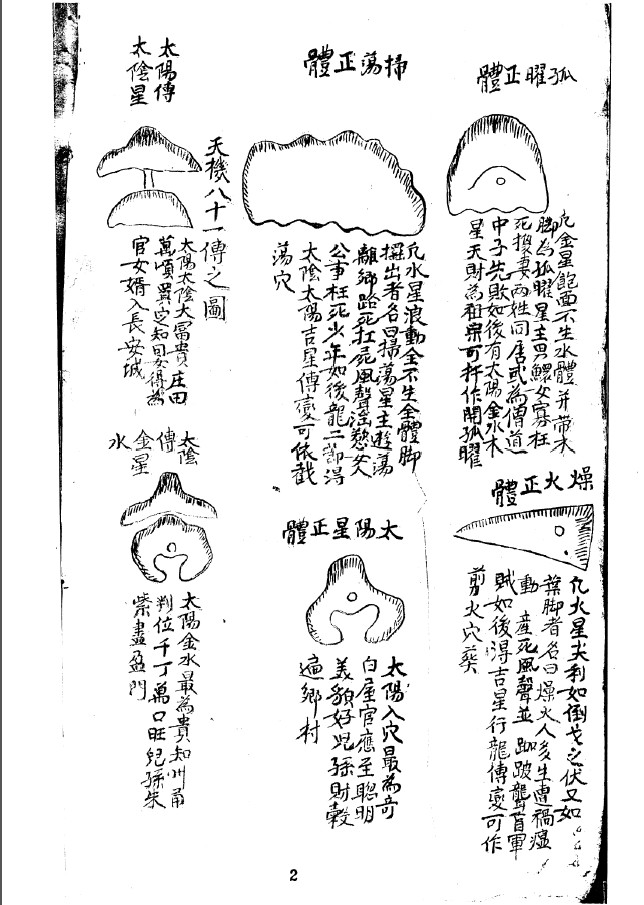 孤曜正體
凡金星飽面不生水體并带木
脚為孤曜星主男鰥女寡枉
死換妻两姓同居或為僧道
中子先敗如後有太陽金水木
星天財為祖宗可扦作開孤曜
燥火正體
凡火星尖利如倒戈之伏又如
葉脚者名曰燥火人多生遭禍瘟
動產死風聲並跏跛聾盲軍
賊如後得吉星行龍傳变可作
剪火穴葵
掃蕩正體
凡水星浪動全不生金體脚
擺出者名曰掃蕩星主遊蕩
離鄉路死扛死風聲淫慾女人
公事枉死少年如後龍二部得
太陰太陽吉星傳变可依截
蕩穴
太陽星正體
太陽入穴最為奇
白屋官應至聦明
美貌好児孫財穀
遍鄉村
天機八十一傳之圖
太陽傳
太陰星
太陽太陰大冨貴庄田
萬頃買定知因女得為
官女婿入長安城
太陰
傳金星
水
太陽金水最為貴知州甬
判位千丁萬口旺兒孫朱
紫盡盈門
2